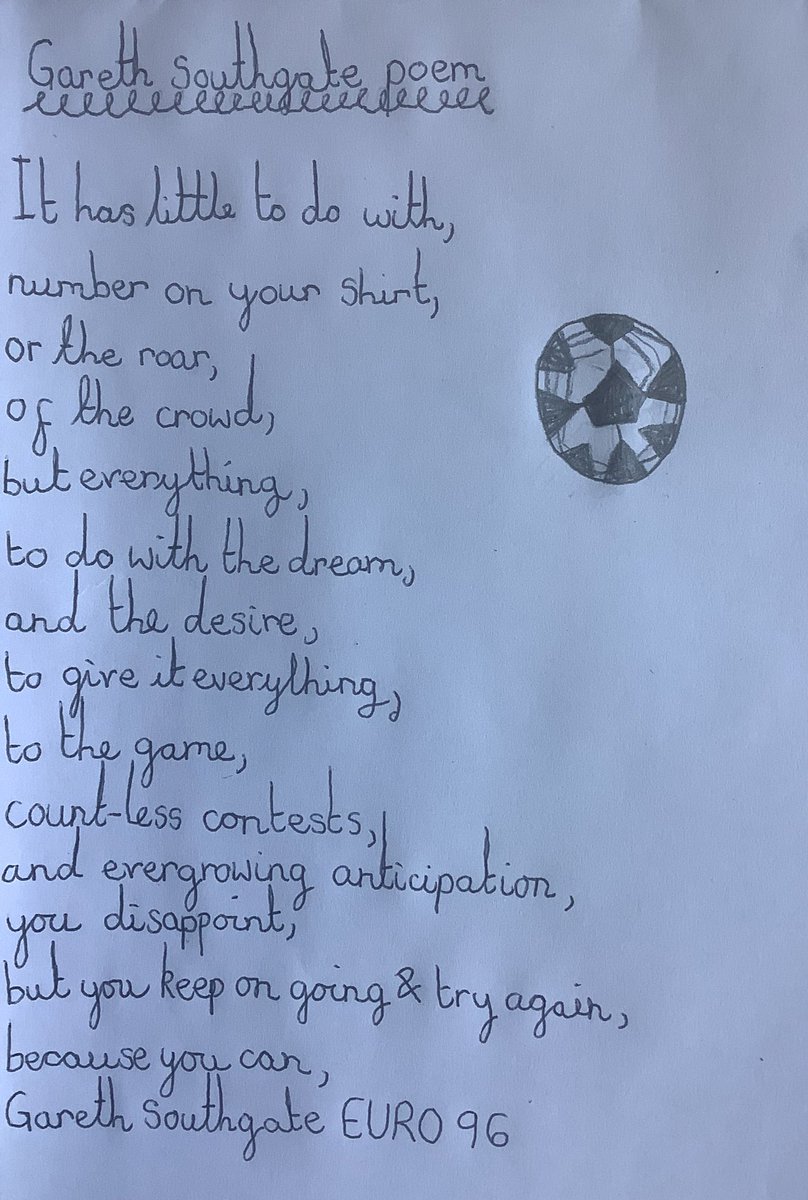 Gareth Southgate poem
It has little to do with,
number on your shirt,
or the roar,
of the crowd,
but everything,
to do with the dream,
and the desire,
to give it everything,
to the game,
count-less contests,
and evergrowing anticipation,
you disappoint,
but you keep on going & try again,
because you can,
Gareth Southgate EURO 96